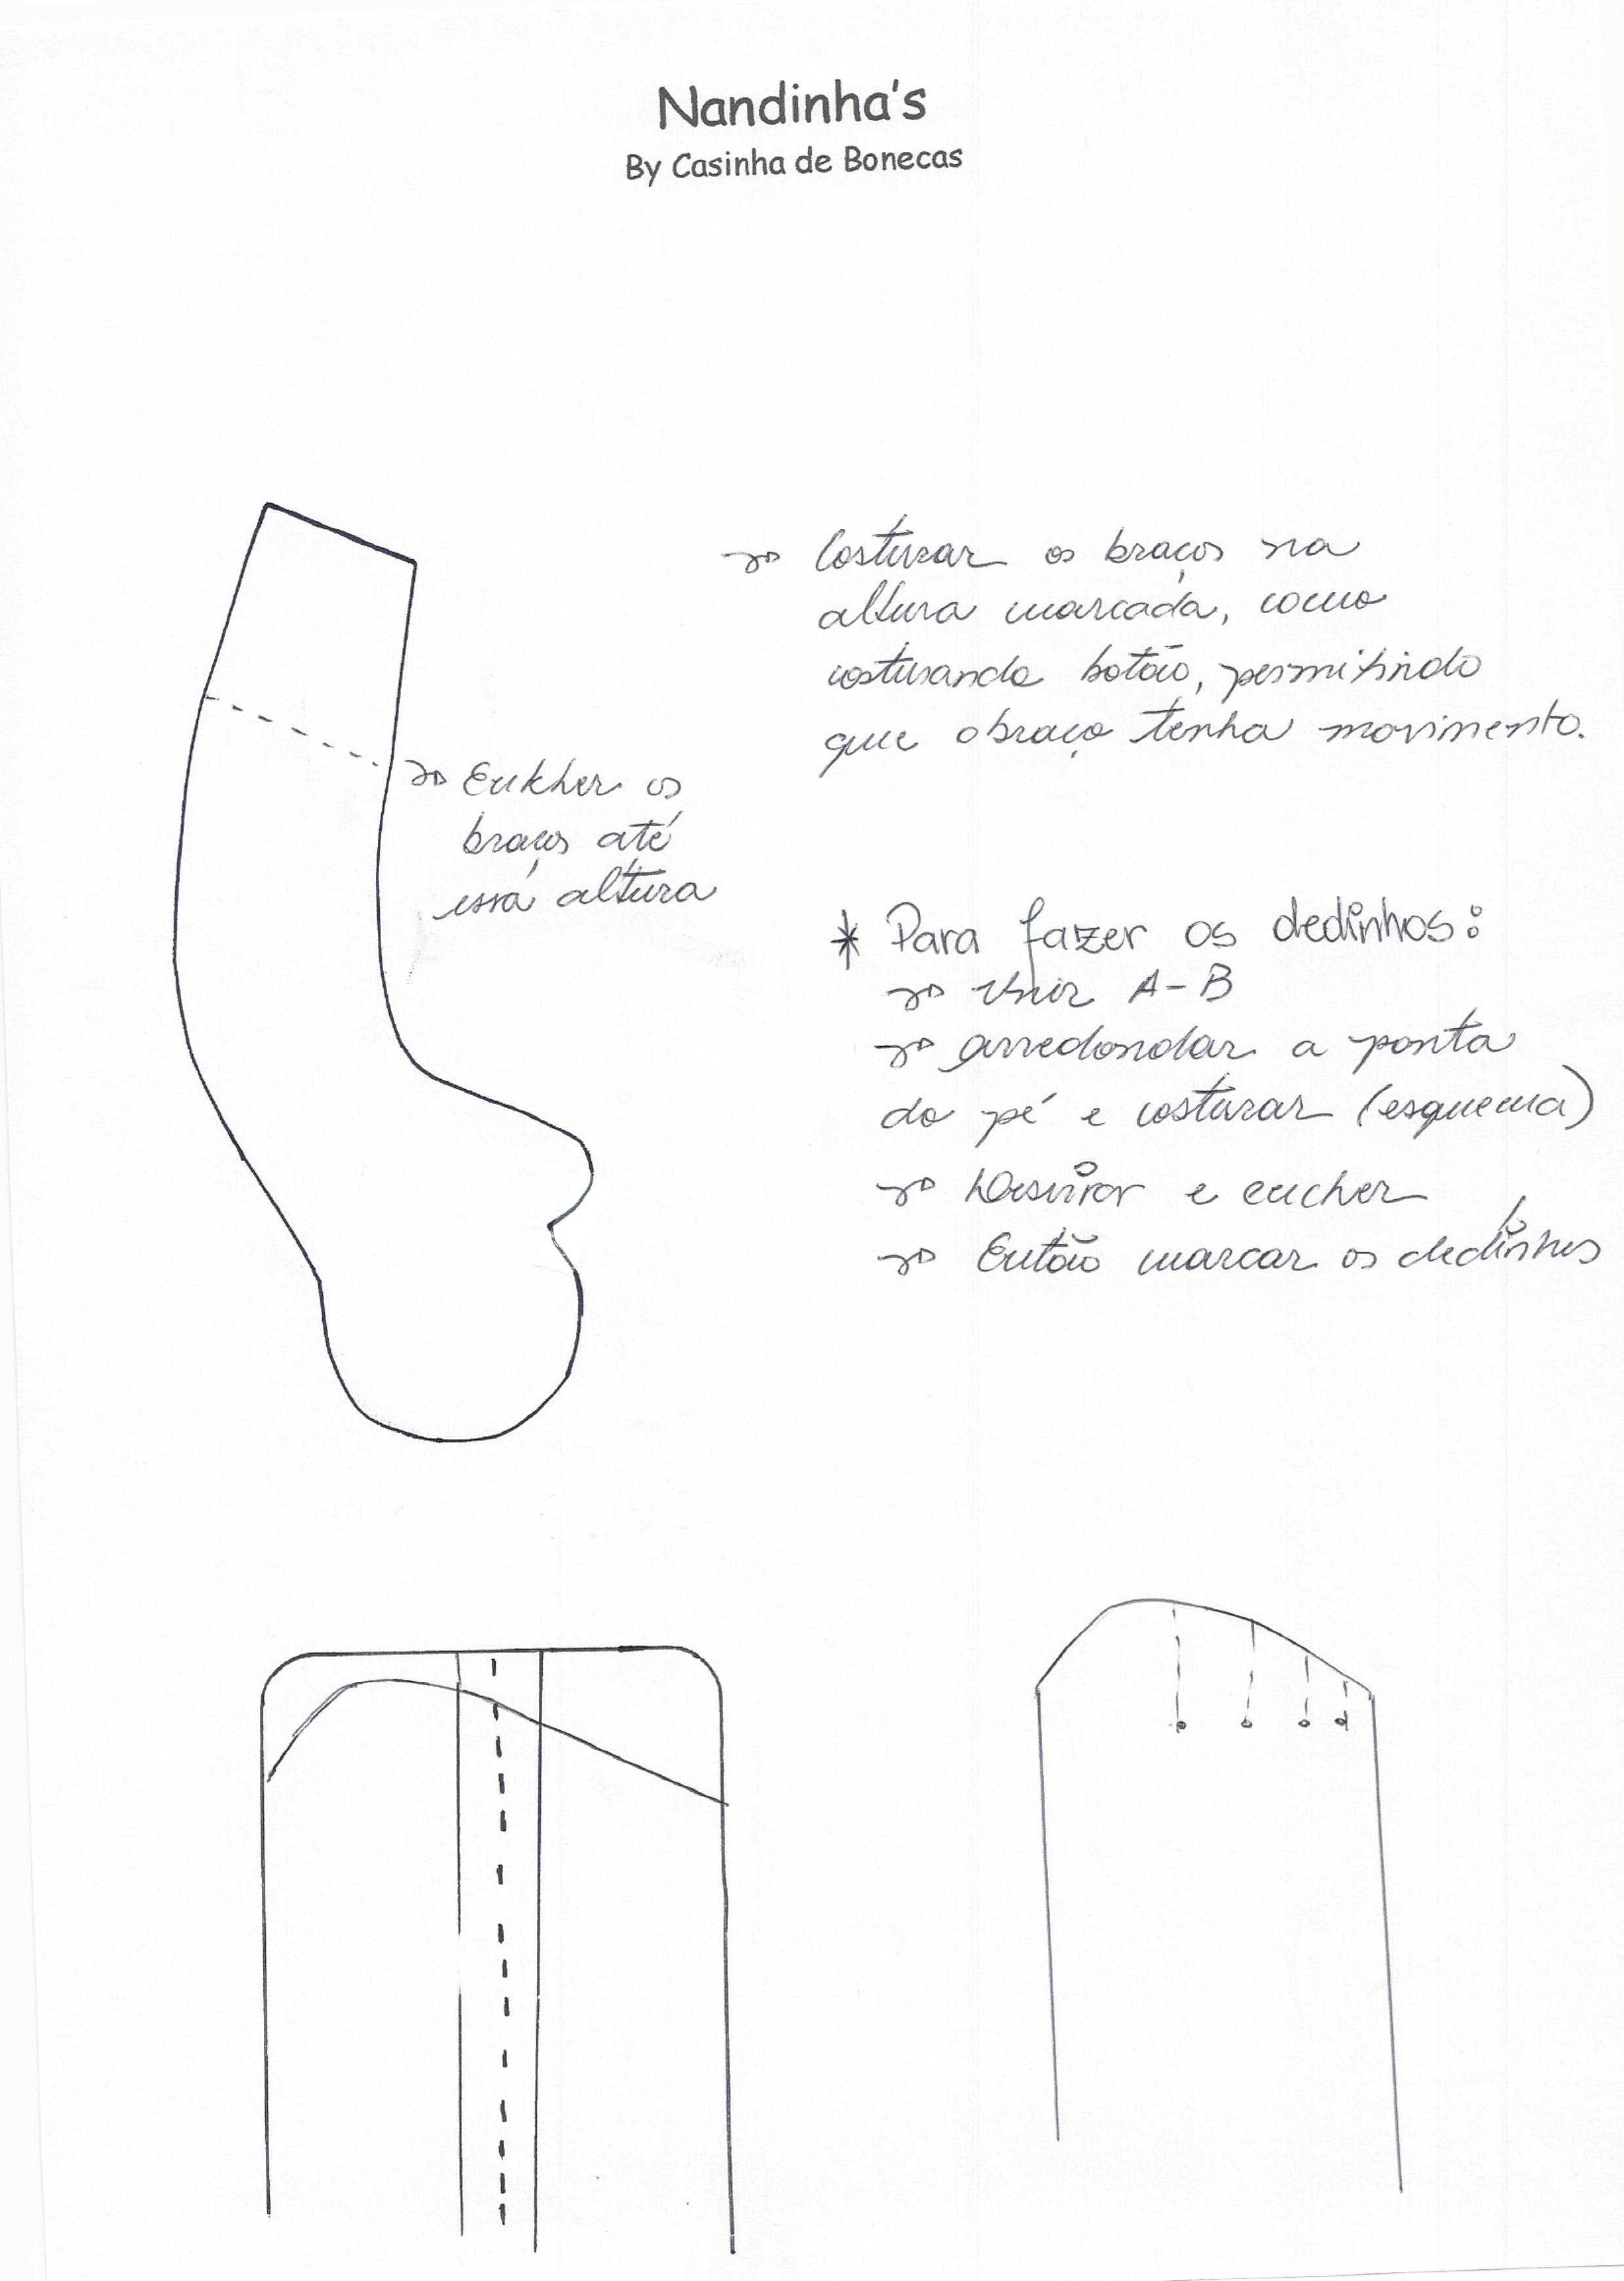 Nandinha's
By Casinha de Bonecas
Costurar os braços na
altura marcada, como
costurando botão, permitindo
que o braço tenha movimento.
Encher os
braços até
essa altura
* Para fazer os dedinhos:
Unir A-B
arredondar a ponta
do pé e costurar (esquema)
Desvirar e encher
Então marcar os dedinhos